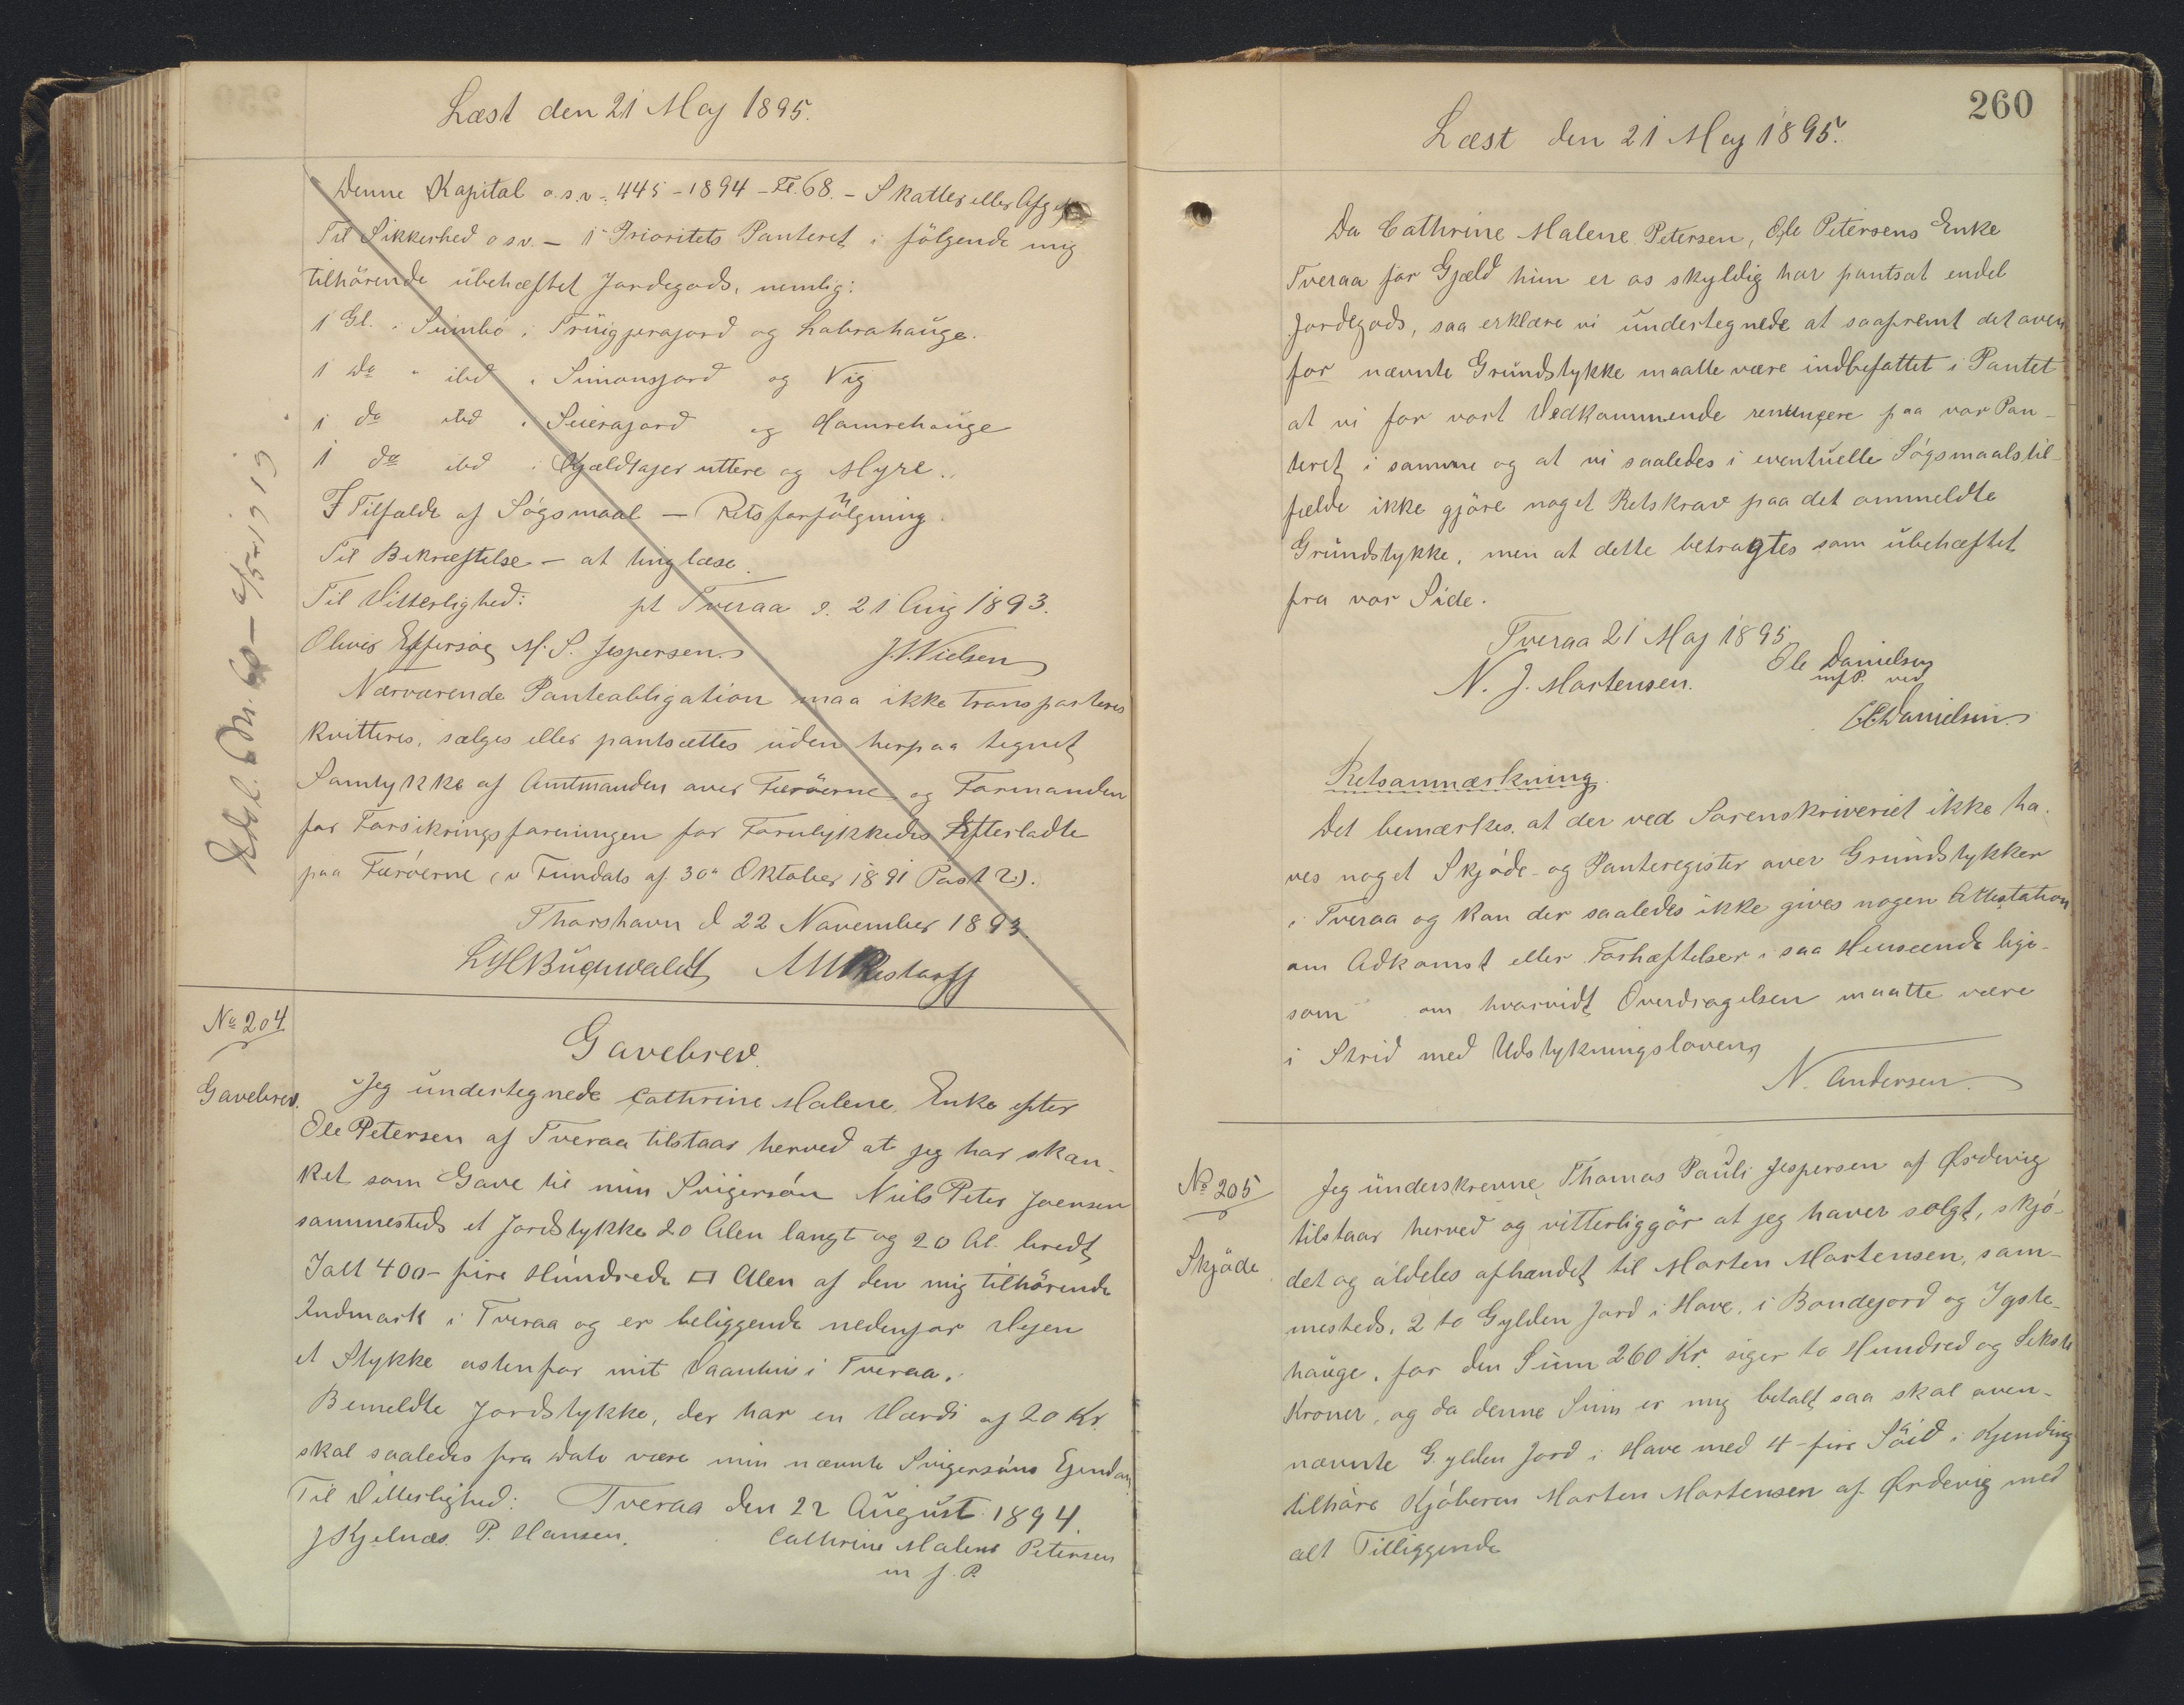 Læst den 21 Maj 1895.
Denne Kapital o.s.v. 445-1894-Fl. 68. - Skatter eller Afgif
Til Sikkerhed o s v. - 1 Prioritets Panteret i fölgende mig
tilhörende ubehæftet Jordegods, nemlig:
1 Gl. i Sumbö i Trúigjerajord og Labrahauge.
1 Do " ibd i Simonsjord og Vig
1 do ibd i Seierajord og Hamrehauge
1 do ibd i Kjældtajer uttere og Myre.
I Tilfælde af Sögsmaal - Retsforfölgning.
Til Bekræftelse - at tinglæse.
Til Vitterlighed: pt Tveraa d. 21 Aug 1893.
Oliver Effersøe M. S. Jespersen. J. S. Nielsen
Nærværende Panteobligation maa ikke transporteres
kvitteres, sælges eller pantsættes uden herpaa tegnet
Samtykke af Amtmanden over Færöerne og Formanden
for Forsikringsforeningen for Forulykkedes Efterladte
paa Færöerne (v Fundats af 30' Oktober 1891 Post 2).
Thorshavn d 22 November 1893.
LHCBuchwaldt MRestorff
Aflyst. 6/5-1919
No 204
Gavebrev.
Gavebrev.
Jeg undertegnede Cathrine Malene, Enke efter
Ole Petersen af Tveraa tilstaar herved at jeg har skæn-
ket som Gave til min Svigersön Niels Peter Joensen
sammesteds et Jordstykke 20 Alen langt og 20 Al. bredt,
Ialt 400- fire Hundrede □ Alen af den mig tilhörende
Indmark i Tveraa og er beliggende nedenfor Vejen
et Stykke østenfor mit Vaanhus i Tveraa.
Bemeldte Jordstykke, der har en Værdi af 20 Kr.
skal saaledes fra Dato være min nævnte Svigersöns Ejendom
Til Vitterlighed: Tveraa den 22 August 1894.
J Kjelnæs. P. Hansen. Cathrine Malene Petersen
m f. P.
260
Læst den 21 Maj 1895.
Da Cathrine Malene Petersen, Ole Petersens Enke
Tveraa for Gjæld hun er os skyldig har pantsat endel
Jordegods, saa erklære vi undertegnede at saafremt det oven
for nævnte Grundstykke maatte være indbefattet i Pantet
at vi for vort Vedkommende renuncere paa vor Pan-
teret i samme og at vi saaledes i eventuelle Sögsmaalstil-
fælde ikke gjöre noget Retskrav paa det ommeldte
Grundstykke, men at dette betragtes som ubehæftet
fra vor Side.
Tveraa 21 Maj 1895
N. J. Mortensen. Ole Danielsen
m f P. ved
Danielsen
Retsanmærkning.
Det bemærkes, at der ved Sorenskriveriet ikke ha-
ves noget Skjöde- og Panteregister over Grundstykker
i Tveraa og kan der saaledes ikke gives nogen Attestation
om Adkomst eller Forhæftelser i saa Henseende lige-
som om hvorvidt Overdragelsen maatte være
i Strid med Udstykningsloven,
N. Andersen.
No 205
Skjöde
Jeg underskrevne, Thomas Pauli Jespersen af Ørdevig
tilstaar herved og vitterliggör at jeg haver solgt, skjö-
det og aldeles afhændet til Morten Mortensen, sam-
mesteds, 2 to Gylden Jord i Hove, i Bondejord og Ygste-
hauge, for den Sum 260 Kr. siger to Hundred og Seksti
Kroner, og da denne Sum er mig betalt saa skal oven-
nævnte Gylden Jord i Hove med 4 - fire Söid i Kjending
tilhöre Kjöberen Morten Mortensen af Ørdevig med
alt Tilliggende